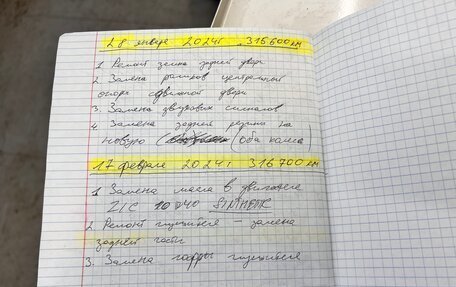 28 января 2024г 316600км
1 Ремонт замка задней двери
2 Замена роликов центральной
опоры сдвижной двери
3. Замена двузвуковых сигналов
4. Замена задней резины на
новую (оба колеса)
17 февраля 2024г 316700км
1 Замена масла в двигателе
ZIC 10W40
2. Ремонт глушителя – замена
задней части
3. Замена гофры глушителя